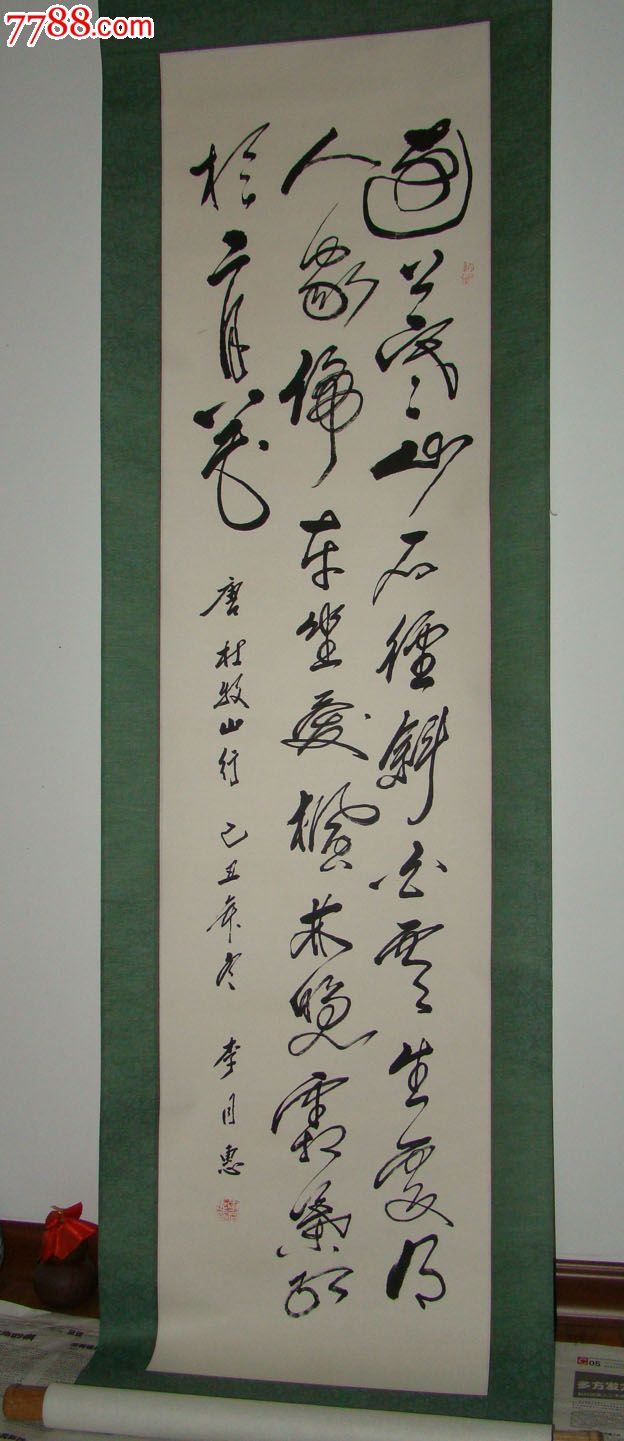 7788.com
遠上寒山石徑斜白雲生處有
人家停車坐愛楓林晚霜葉紅
於二月花
唐杜牧山行 己丑年冬 李月惠
C05
多方发